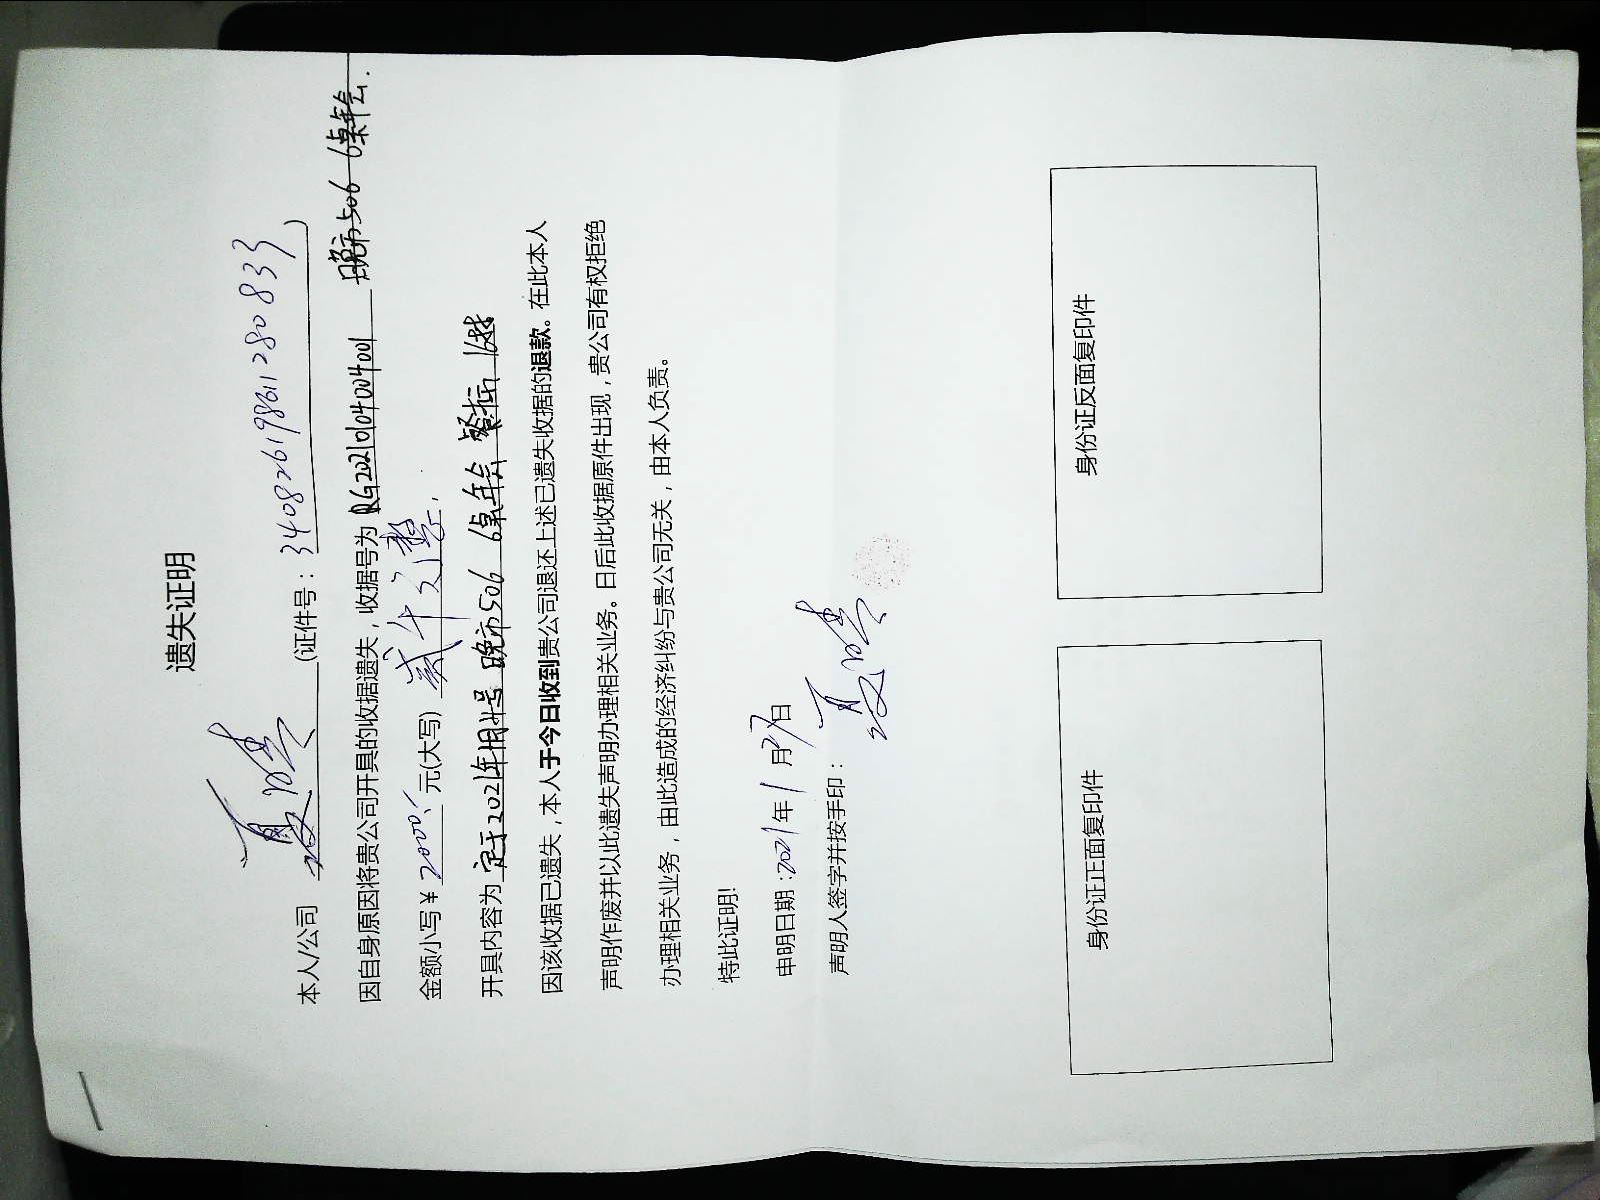 遗失证明
本人/公司 夏晴 (证件号：340826198611280833)
因自身原因将贵公司开具的收据遗失，收据号为 RG20210104001 晚市506 6桌年会.
金额小写￥2000 元(大写) 贰仟元整
开具内容为 定于2021年1月24号 晚市506 6桌年会 餐标
因该收据已遗失，本人于今日收到贵公司退还上述已遗失收据的退款。在此本人
声明作废并以此遗失声明办理相关业务。日后此收据原件出现，贵公司有权拒绝
办理相关业务，由此造成的经济纠纷与贵公司无关，由本人负责。
特此证明!
申明日期:2021年1月27日
声明人签字并按手印： 夏晴
身份证正面复印件
身份证反面复印件